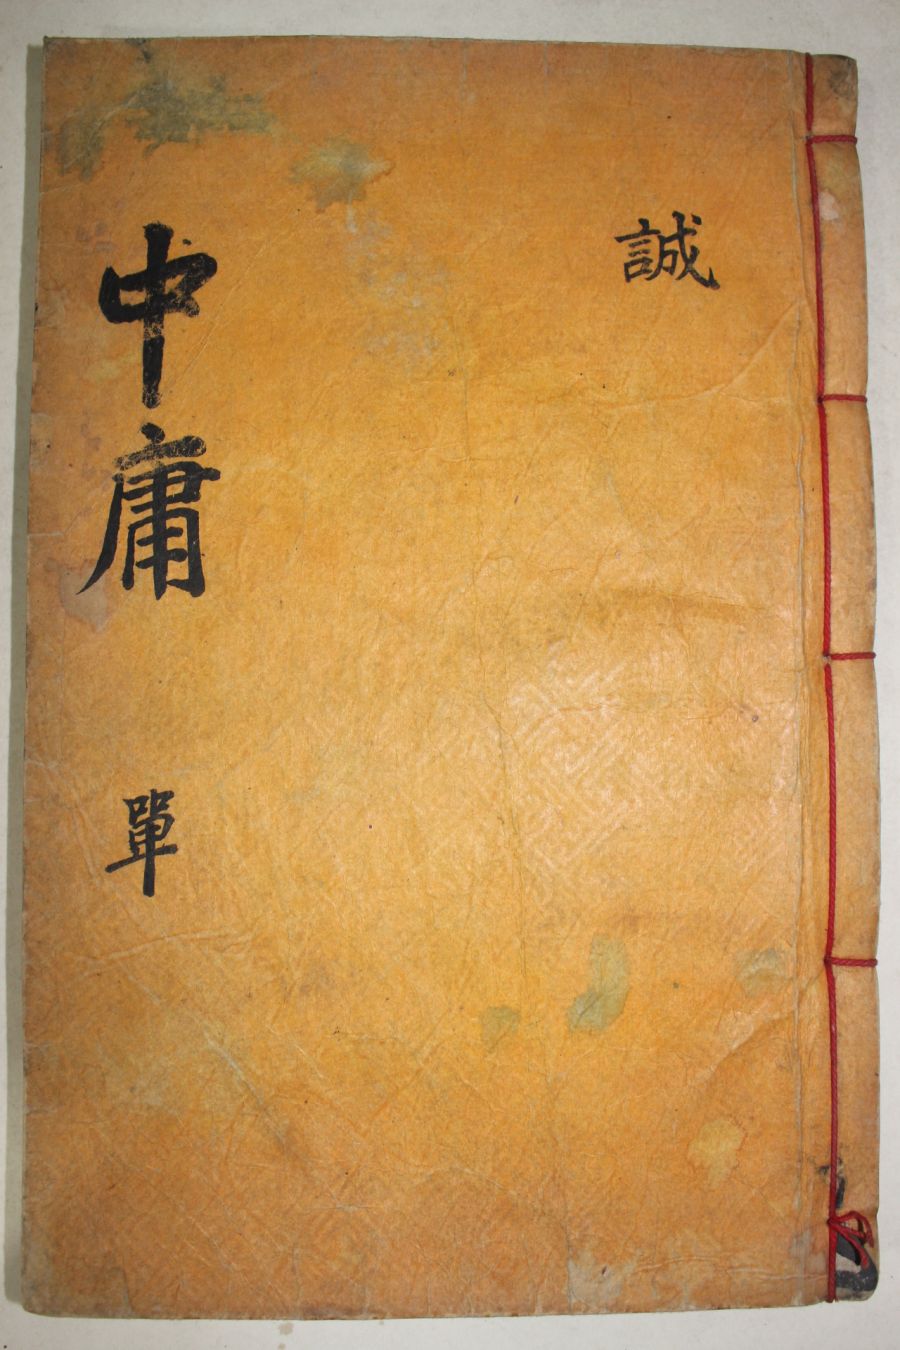 誠
中庸
單